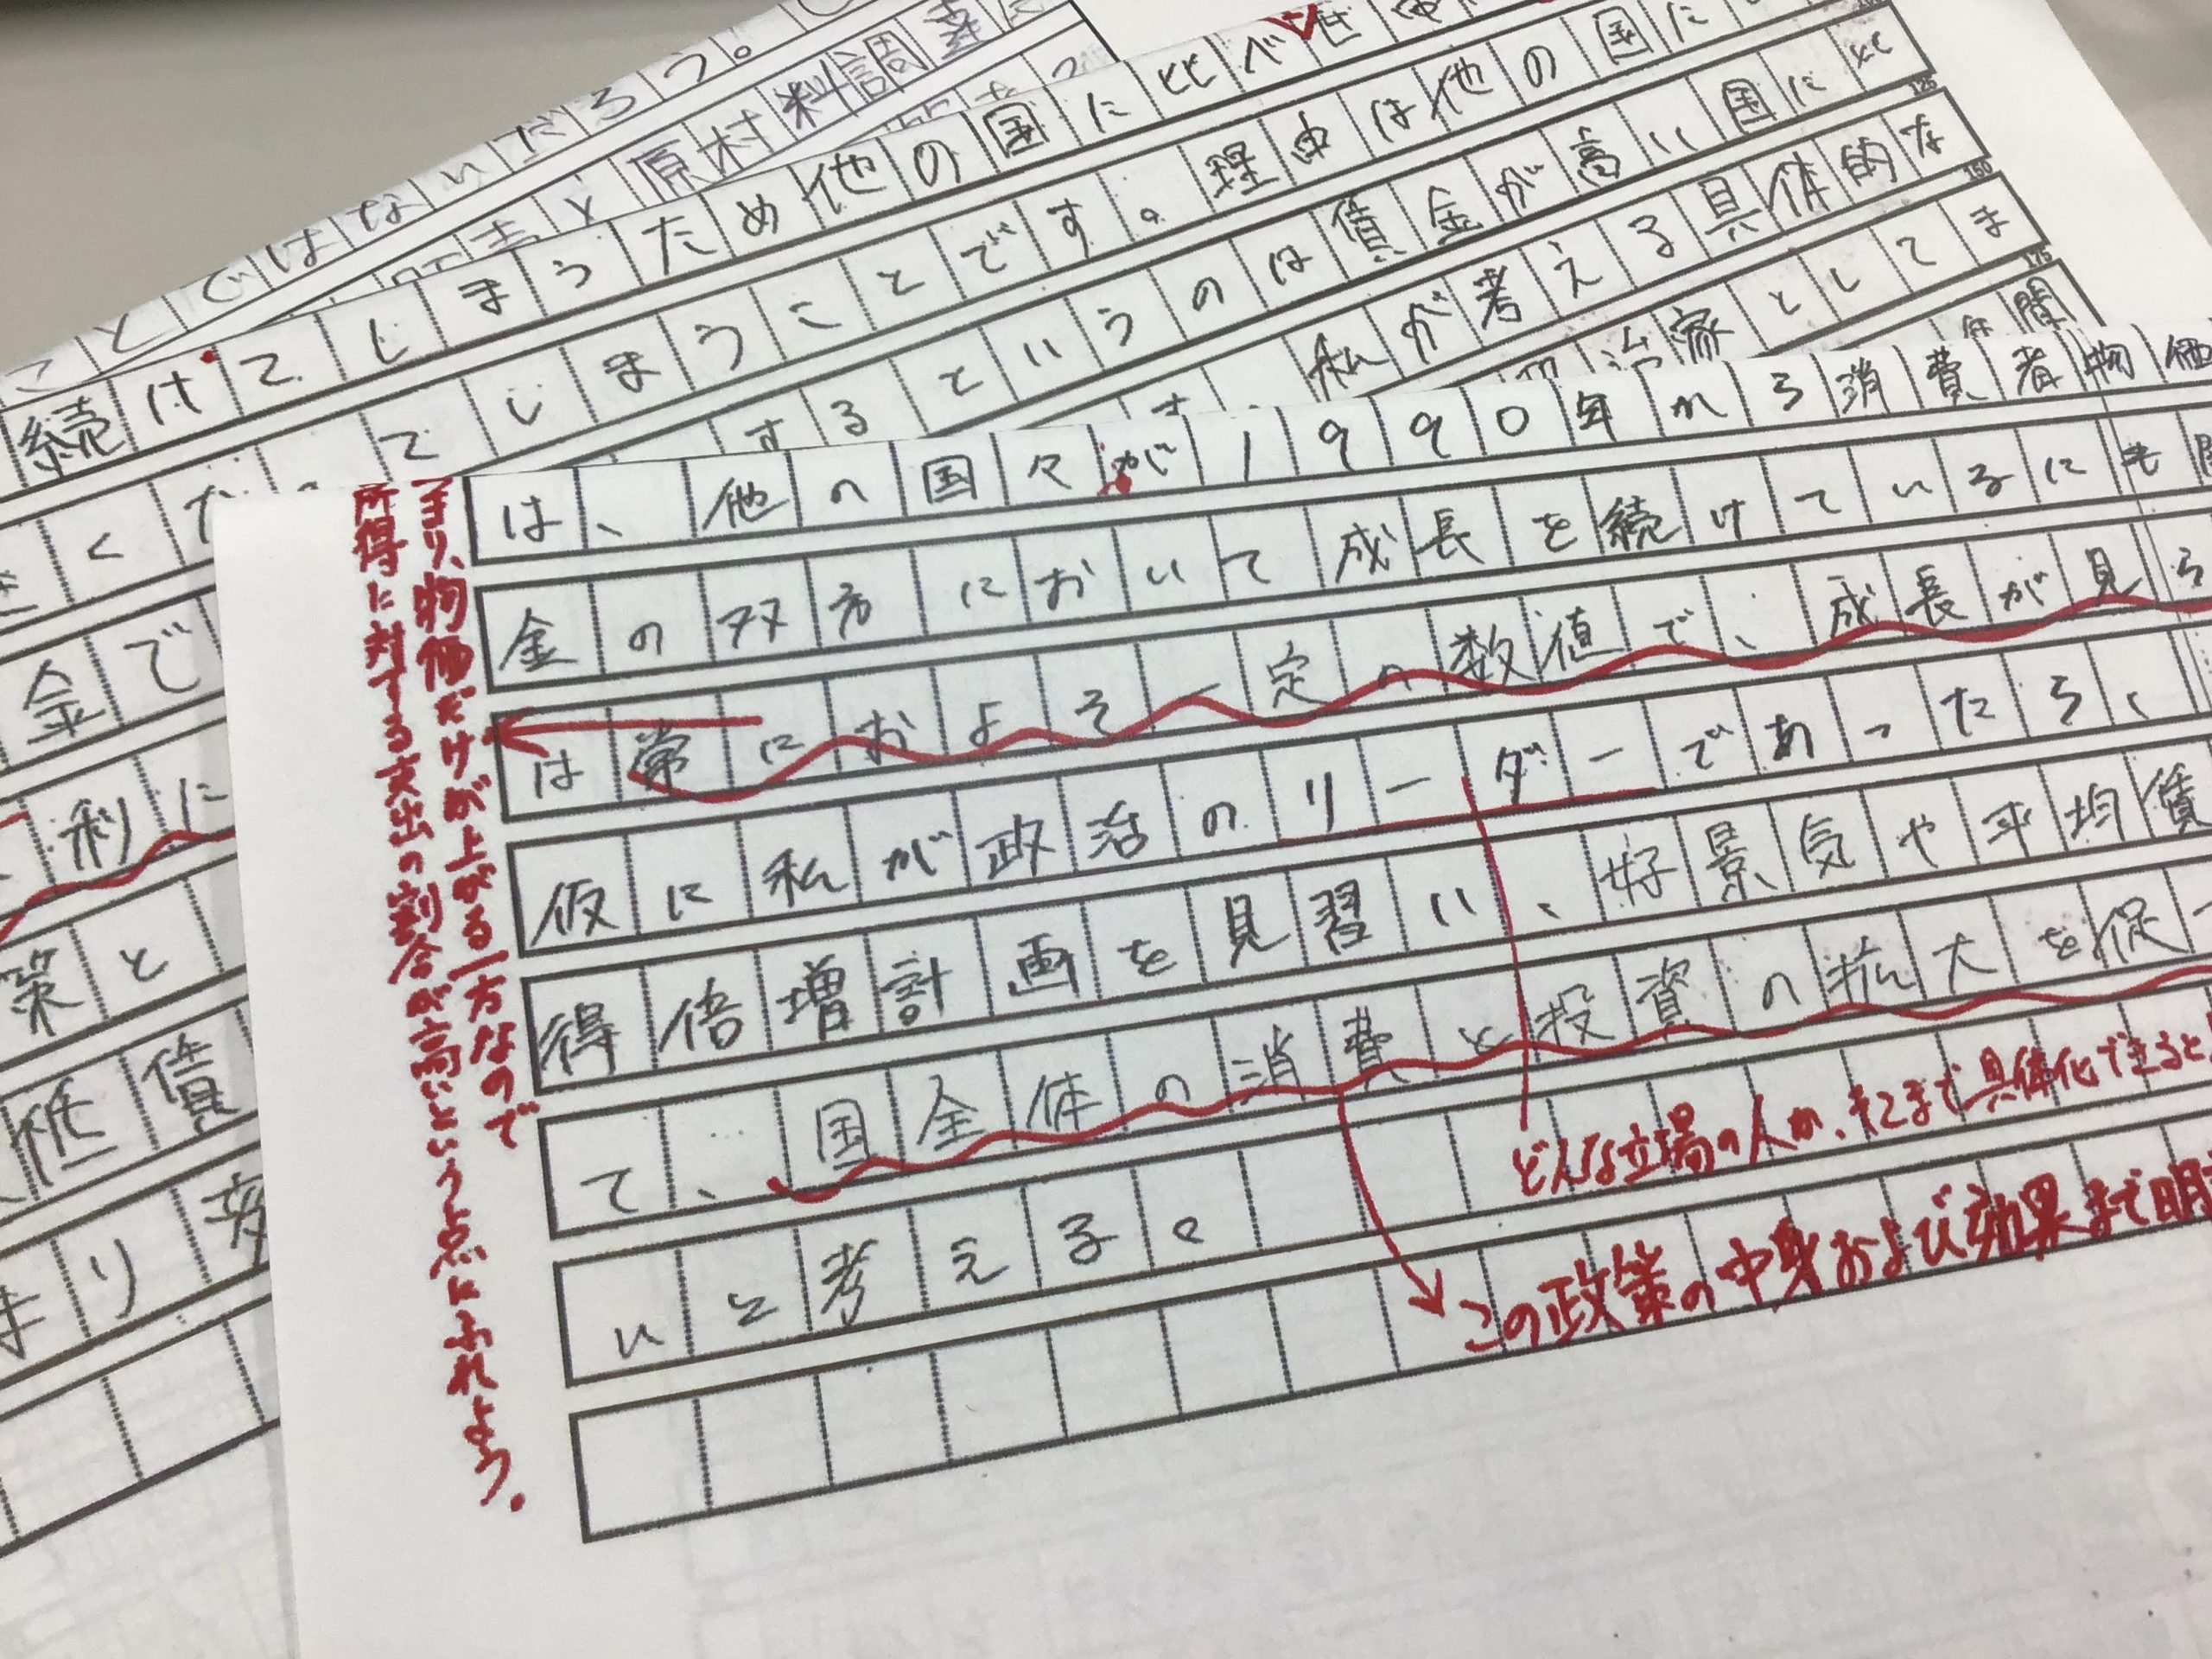 ではないだろう。
原材料調達
続けてしまうため他の国に比べ
てしまうことです。理由は他の国に
するというのは賃金が高い国に比
私が考える具体的な
治家としてま
金で
利に
策と
低賃
まり
は、他の国々が1990年から消費者物価
金の双方において成長を続けているにも関
は常におよそ一定の数値で、成長が見ら
仮に私が政治のリーダーであったら、
得倍増計画を見習い、好景気や平均賃
て、国全体の消費と投資の拡大を促
いと考える。
つまり、物価だけが上がる一方なので
所得に対する支出の割合が高いという点にふれよう。
どんな立場の人か、そこまで具体化できると
この政策の中身および効果まで明